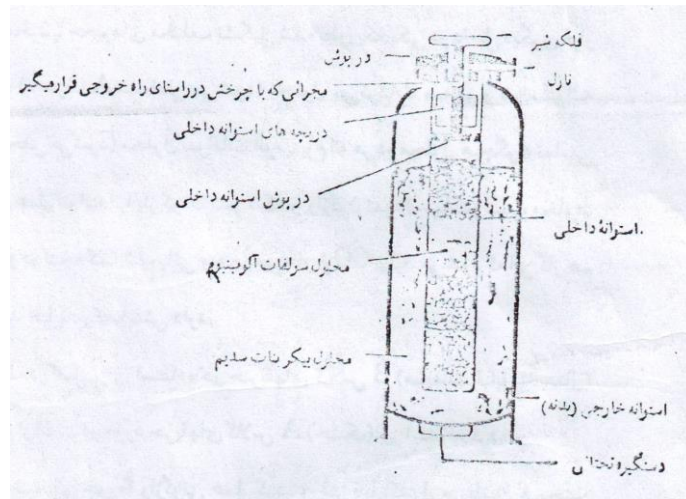 فلکه شیر
درپوش
نازل
مجرائی که با چرخش در راستای راه خروجی قرار میگیر
دریچه های استوانه داخلی
درپوش استوانه داخلی
استوانهٔ داخلی
محلول سولفات آلومینیوم
محلول بیکربنات سدیم
استوانه خارجی (بدنه)
دستگیره تحتانی